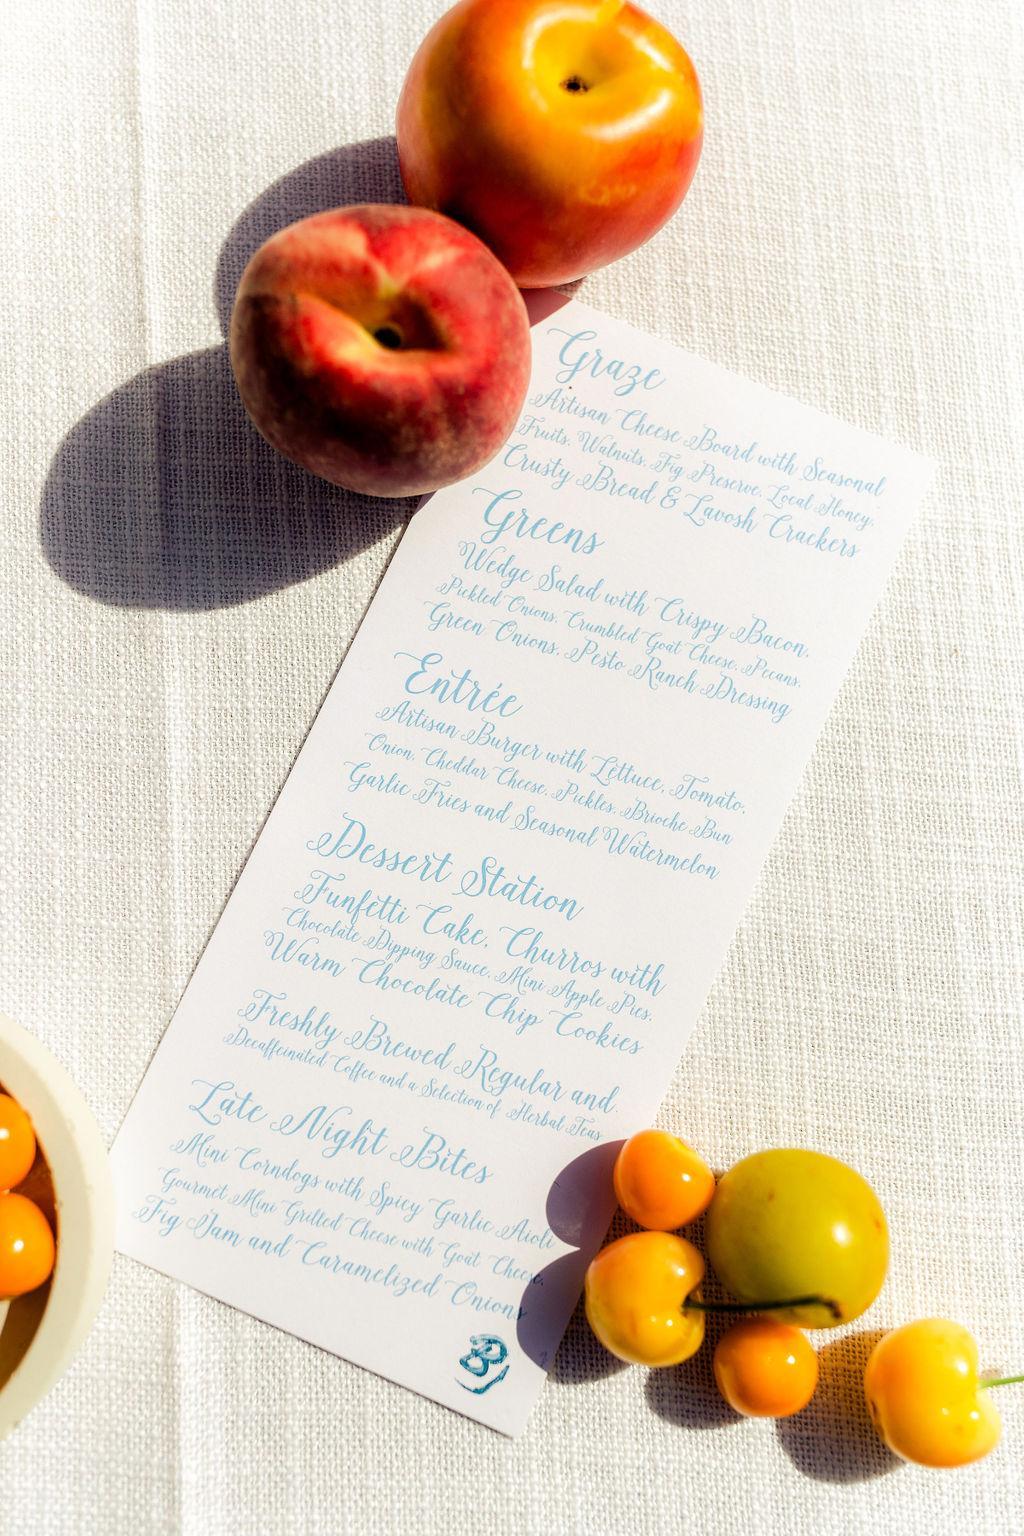 Graze
Artisan Cheese Board with Seasonal
Fruits, Walnuts, Fig Preserve, Local Honey,
Crusty Bread & Lavosh Crackers
Greens
Wedge Salad with Crispy Bacon,
Pickled Onions, Crumbled Goat Cheese, Pecans,
Green Onions, Pesto Ranch Dressing
Entrée
Artisan Burger with Lettuce, Tomato,
Onion, Cheddar Cheese, Pickles, Brioche Bun
Garlic Fries and Seasonal Watermelon
Dessert Station
Funfetti Cake, Churros with
Chocolate Dipping Sauce, Mini Apple Pies,
Warm Chocolate Chip Cookies
Freshly Brewed Regular and
Decaffeinated Coffee and a Selection of Herbal Teas
Late Night Bites
Mini Corndogs with Spicy Garlic Aioli
Gourmet Mini Grilled Cheese with Goat Cheese,
Fig Jam and Caramelized Onions